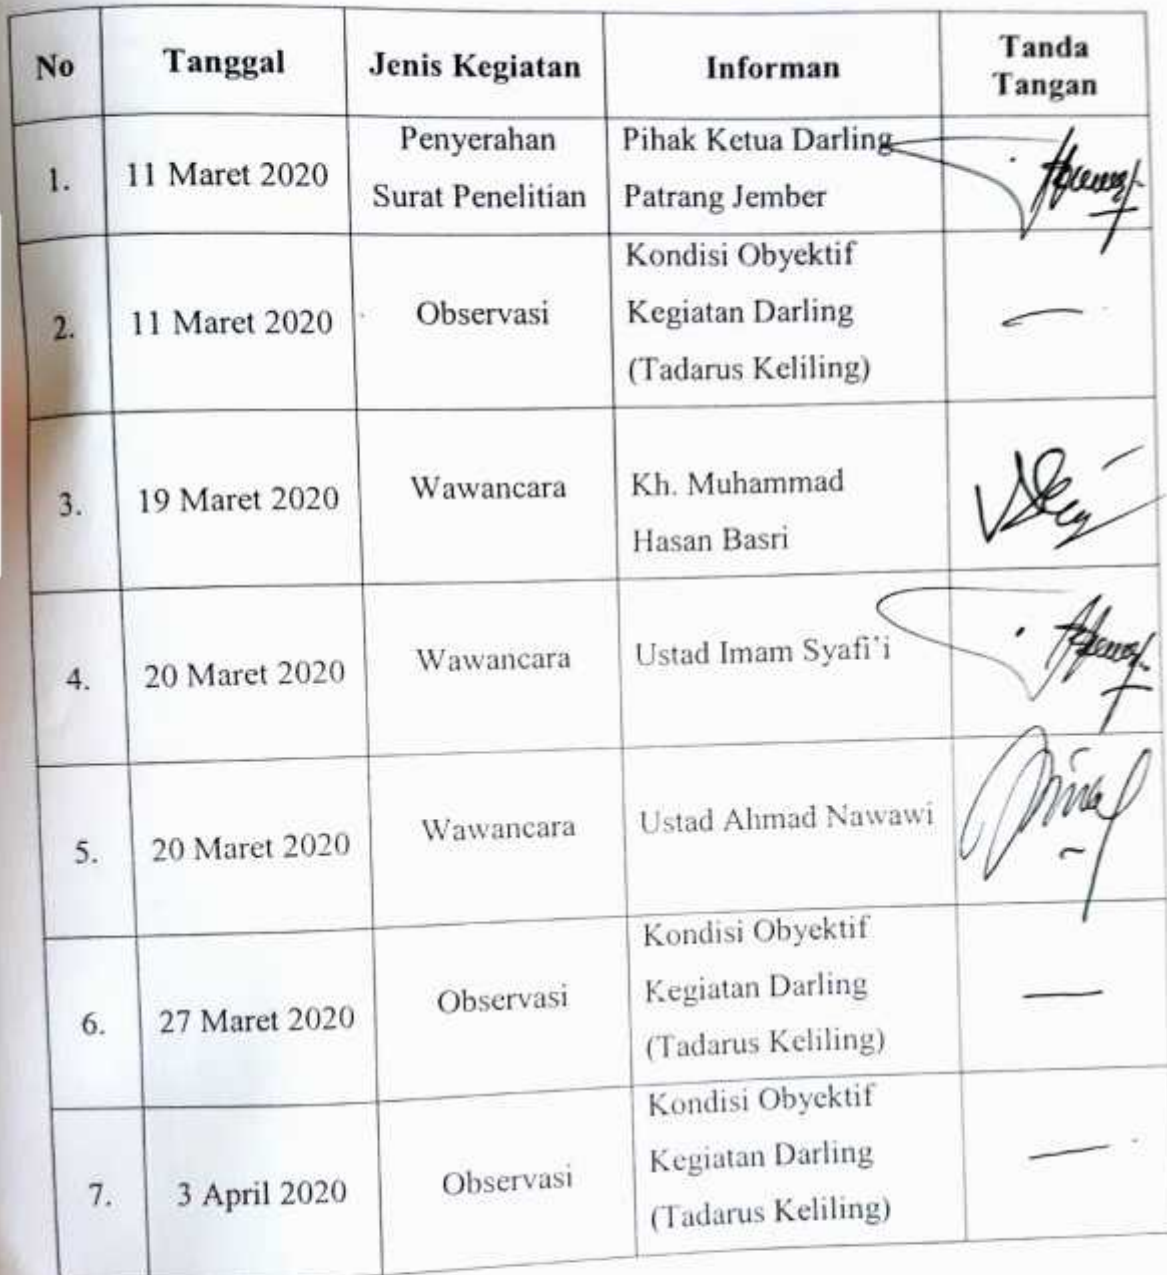 No Tanggal Jenis Kegiatan Informan Tanda
Tangan
1. 11 Maret 2020 Penyerahan Pihak Ketua Darling
Surat Penelitian Patrang Jember
2. 11 Maret 2020 Observasi Kondisi Obyektif
Kegiatan Darling
(Tadarus Keliling)
3. 19 Maret 2020 Wawancara Kh. Muhammad
Hasan Basri
4. 20 Maret 2020 Wawancara Ustad Imam Syafi'i
5. 20 Maret 2020 Wawancara Ustad Ahmad Nawawi
6. 27 Maret 2020 Observasi Kondisi Obyektif
Kegiatan Darling
(Tadarus Keliling)
7. 3 April 2020 Observasi Kondisi Obyektif
Kegiatan Darling
(Tadarus Keliling)